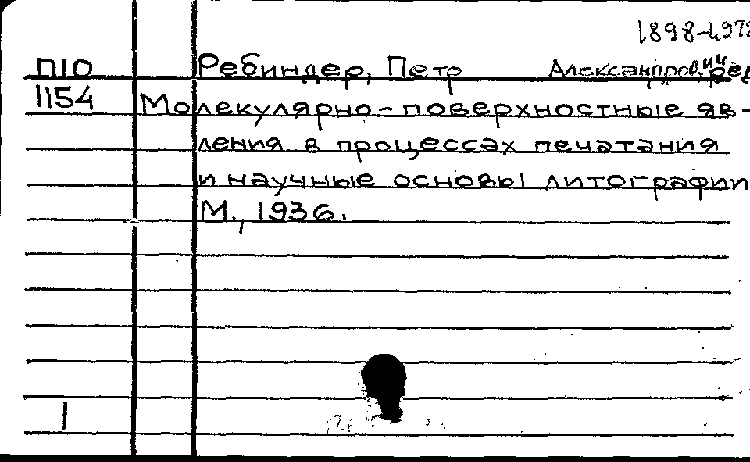 1898-1972
П10 Ребиндер, Петр Александрович, ред.
1154 Молекулярно-поверхностные яв-
ления в процессах печатания
и научные основы литографии
М., 1936.
1